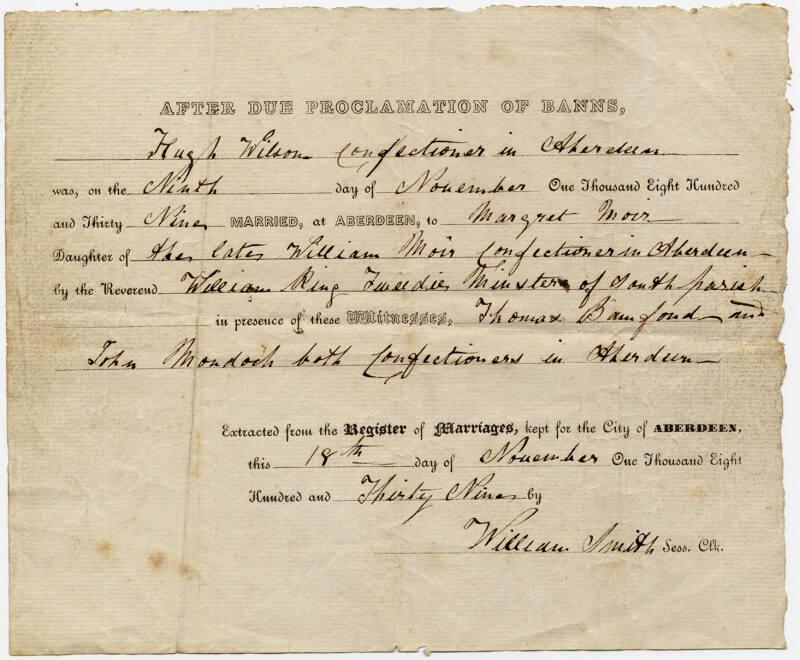 AFTER DUE PROCLAMATION OF BANNS,
Hugh Wilson Confectioner in Aberdeen
was, on the Ninth day of November One Thousand Eight Hundred
and Thirty Nine MARRIED, at ABERDEEN, to Margret Moir
Daughter of the late William Moir Confectioner in Aberdeen
by the Reverend William King Tweedie Minster of South parish
in presence of these Witnesses, Thomas Bamfoud and
John Mondoch both Confectioners in Aberdeen
Extracted from the Register of Marriages, kept for the City of ABERDEEN,
this 18th day of November One Thousand Eight
Hundred and Thirty Nine by
William Smith Sess. Clk.